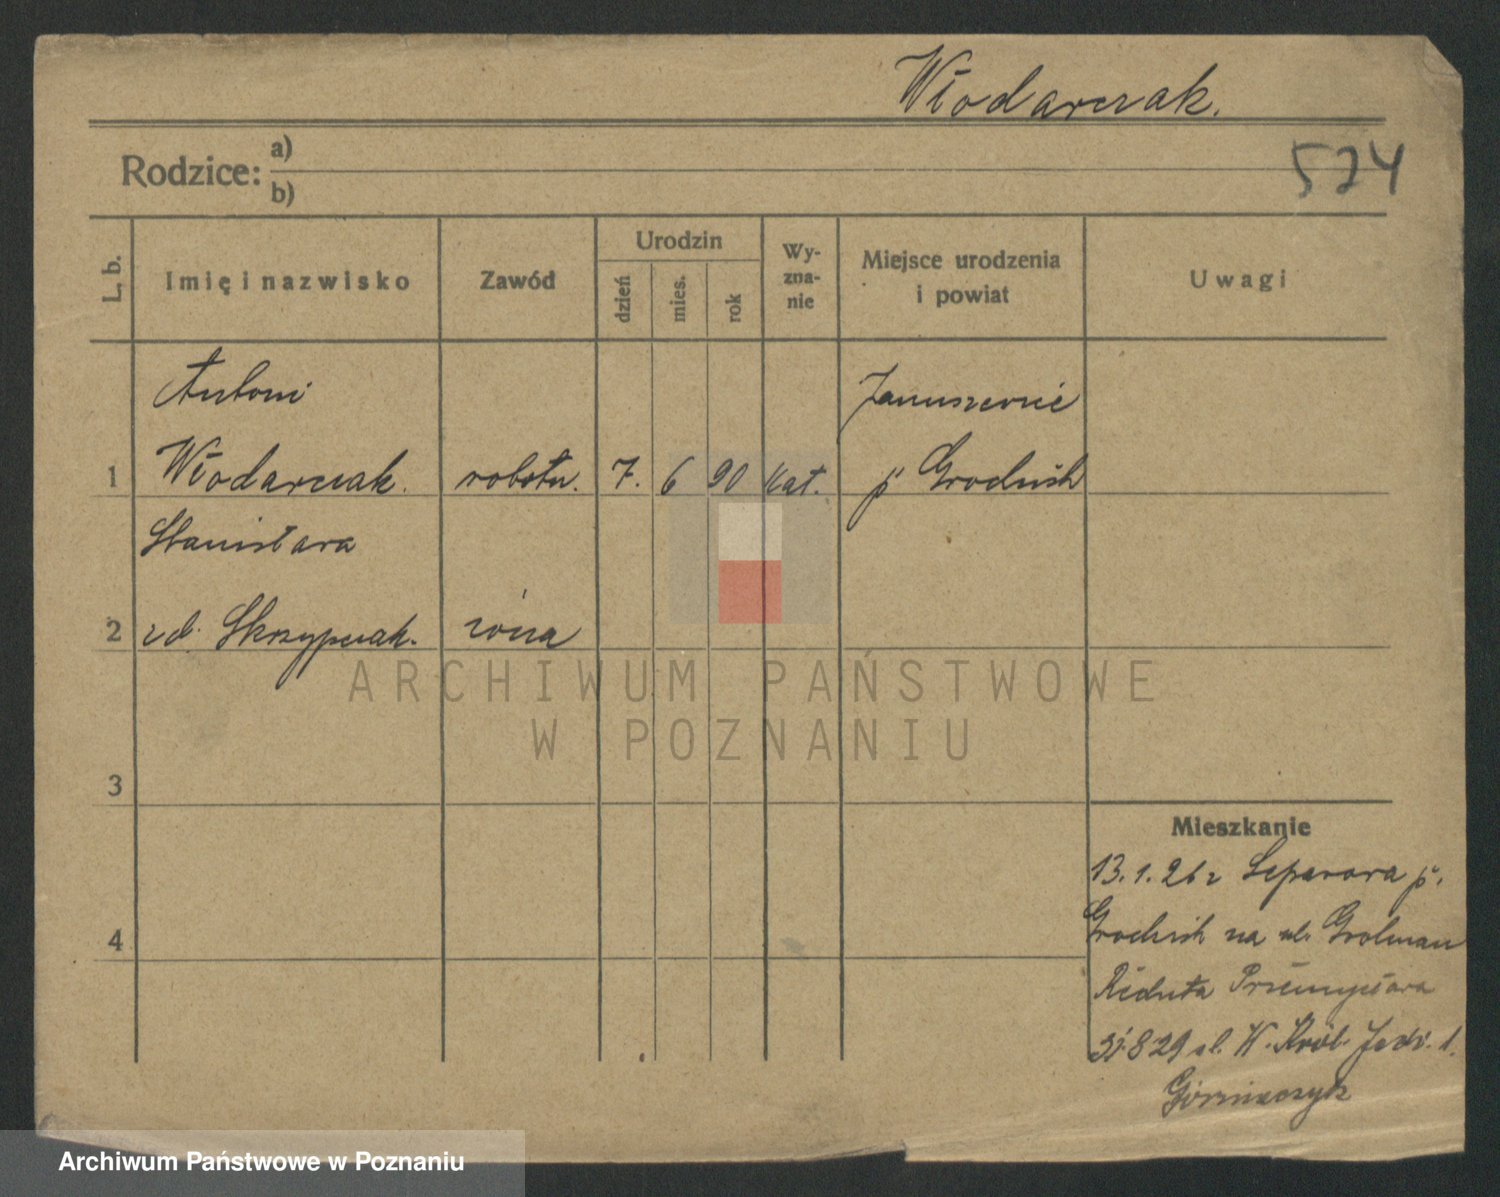 Włodarczak.
Rodzice: a)
b)
574
L. b.
Imię i nazwisko
Zawód
Urodzin
dzień
mies.
rok
Wy-
zna-
nie
Miejsce urodzenia
i powiat
Uwagi
Antoni
Januszewic
1 Włodarczak. robotn. 7. 6 90 kat. p Grodzisk
Stanisława
2 zd. Skrzypczak. żona
ARCHIWUM PAŃSTWOWE
W POZNANIU
3
Mieszkanie
13.1.26 z Separowa p.
4
Grodzisk na ul. Grolman
Reduta Przemysława
829 ul. K. Król. Jadw. 1.
Archiwum Państwowe w Poznaniu